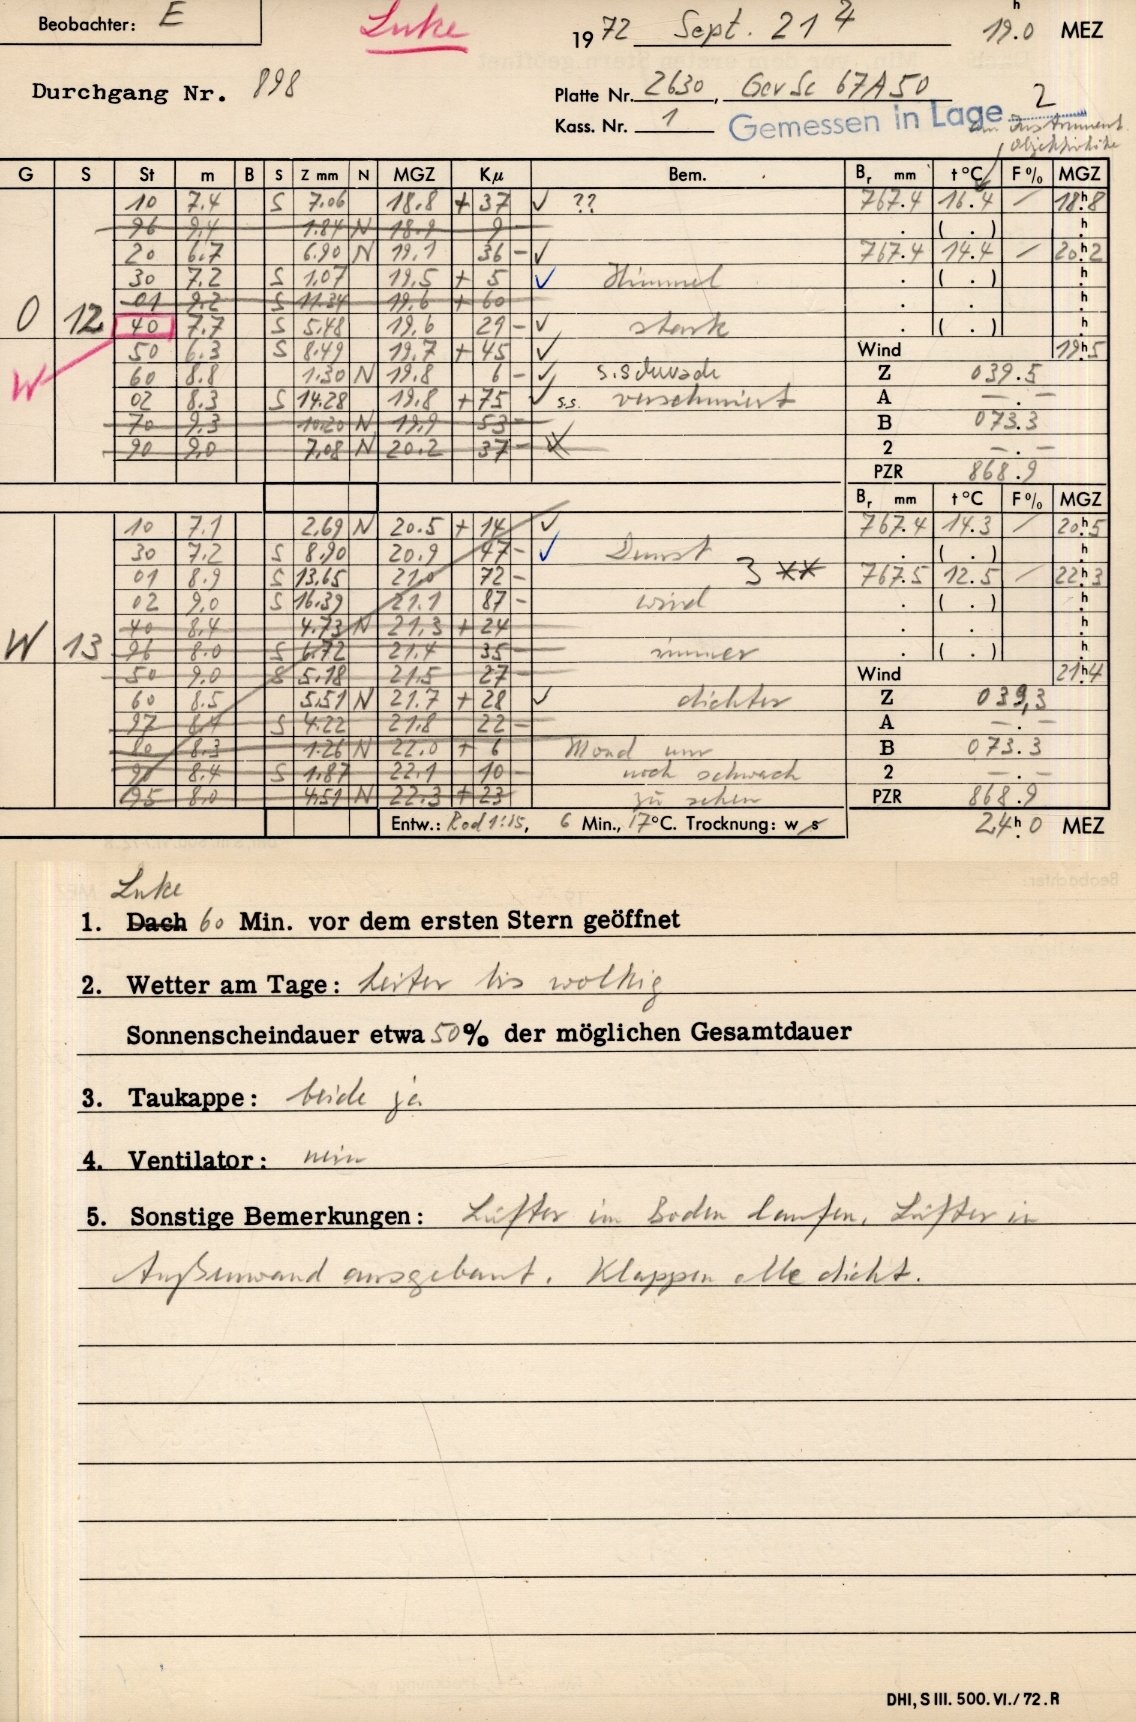 Beobachter: E
Luke
1972 Sept. 21 4
19.0 h MEZ
Durchgang Nr. 898
Platte Nr. 2630, GevSc 67A50
Kass. Nr. 1
Gemessen in Lage 2
am Instrument.
Objektivhöhe
G S St m B S Z mm N MGZ Kμ Bem. Br mm t°C F% MGZ
10 7.4 S 7.06 18.8 + 37 ✓ ?? 767.4 16.4 / 18h8
96 9.4 1.84 N 18.9 9 - . ( . ) h
20 6.7 6.90 N 19.1 36 - ✓ 767.4 14.4 / 20h2
30 7.2 S 1.07 19.5 + 5 ✓ Himmel . ( . ) h
01 9.2 S 11.34 19.6 + 60 . . h
O 12 40 7.7 S 5.48 19.6 29 - ✓ stark . ( . ) h
50 6.3 S 8.49 19.7 + 45 ✓ Wind 19h5
W 60 8.8 1.30 N 19.8 6 - ✓ s.schwach Z 039.5
02 8.3 S 14.28 19.8 + 75 ✓ s.s. verschmiert A - . -
70 9.3 10.20 N 19.9 53 - B 073.3
90 9.0 7.08 N 20.2 37 - ✓ 2 - . -
PZR 868.9
Br mm t°C F% MGZ
10 7.1 2.69 N 20.5 + 14 ✓ 767.4 14.3 / 20h5
30 7.2 S 8.90 20.9 47 - ✓ Dunst . ( . ) h
01 8.9 S 13.65 21.0 72 - 3 ** 767.5 12.5 / 22h3
02 9.0 S 16.39 21.1 87 - wird . ( . ) h
40 8.4 4.73 N 21.3 + 24 . . h
W 13 96 8.0 S 6.72 21.4 35 - immer . ( . ) h
50 9.0 S 5.18 21.5 27 - Wind 21h4
60 8.5 5.51 N 21.7 + 28 ✓ dichter Z 039,3
97 8.4 S 4.22 21.8 22 - A - . -
80 8.3 1.26 N 22.0 + 6 Mond nur B 073.3
90 8.4 S 1.87 22.1 10 - noch schwach 2 - . -
95 8.0 4.51 N 22.3 + 23 zu sehen PZR 868.9
Entw.: Rod 1:15, 6 Min., 17°C. Trocknung: w s 24h0 MEZ
Luke
1. Dach 60 Min. vor dem ersten Stern geöffnet
2. Wetter am Tage: heiter bis wolkig
Sonnenscheindauer etwa 50% der möglichen Gesamtdauer
3. Taukappe: beide ja
4. Ventilator: nein
5. Sonstige Bemerkungen: Lüfter im Boden laufen, Lüfter in
Außenwand ausgebaut. Klappen alle dicht.
DHI, S III. 500. VI./72. R